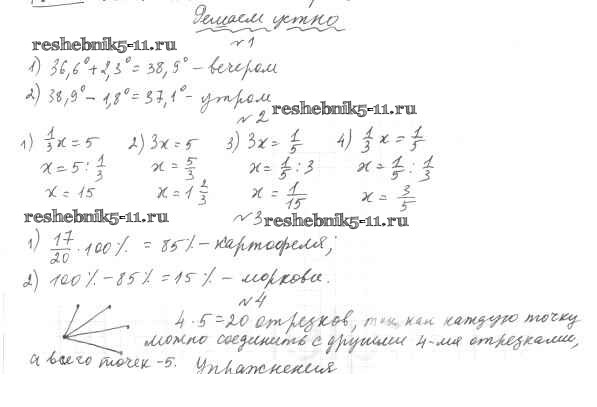 Решаем устно
reshebnik5-11.ru
№1
1) 36,6° + 2,3° = 38,9° – вечером
2) 38,9° – 1,8° = 37,1° – утром
reshebnik5-11.ru
№2
1) 1/3 x = 5 2) 3x = 5 3) 3x = 1/5 4) 1/3 x = 1/5
x = 5 : 1/3 x = 5/3 x = 1/5 : 3 x = 1/5 : 1/3
x = 15 x = 1 2/3 x = 1/15 x = 3/5
reshebnik5-11.ru №3 reshebnik5-11.ru
1) 17/20 · 100% = 85% – картофеля;
2) 100% – 85% = 15% – моркови.
№4
4 · 5 = 20 отрезков, так как каждую точку
можно соединить с другими 4-мя отрезками,
а всего точек – 5. Упражнения